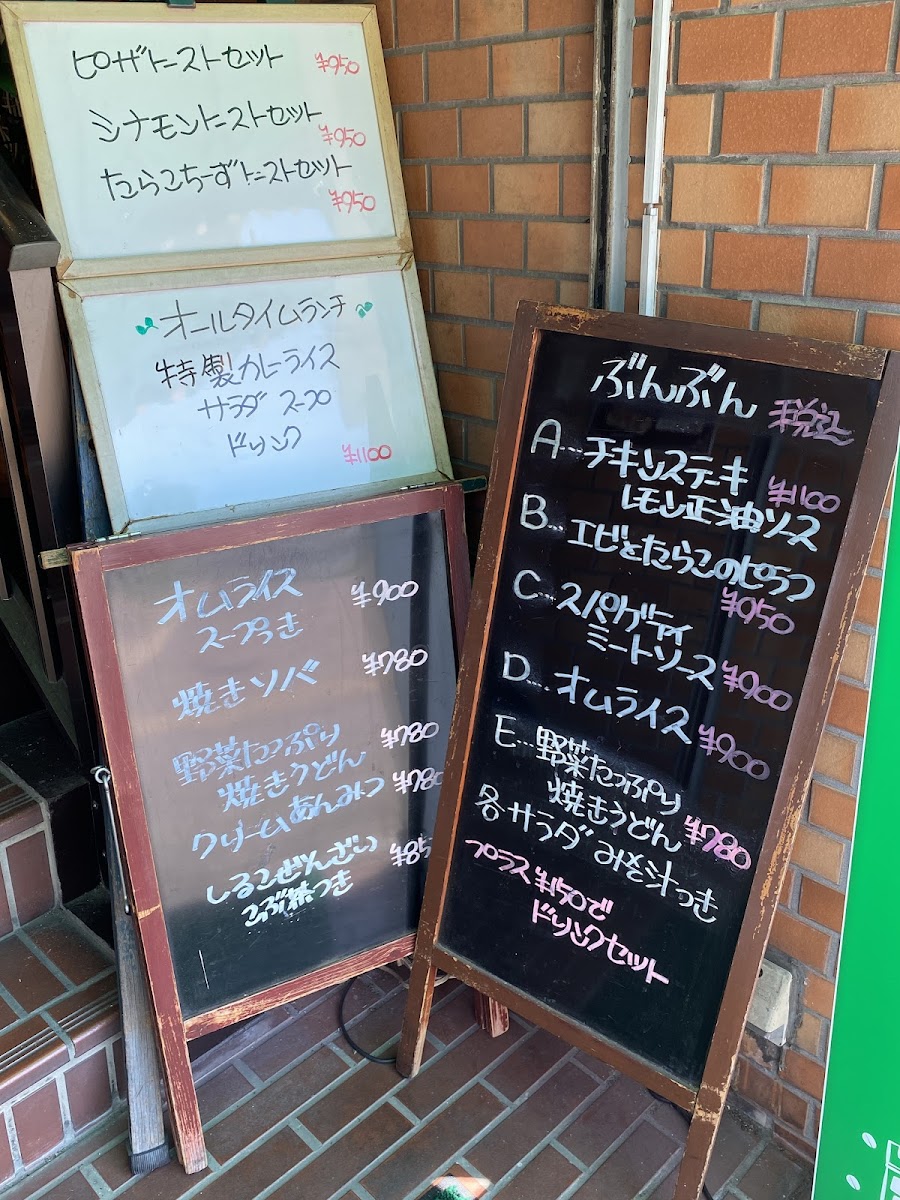 ピザトーストセット ¥950
シナモントーストセット ¥950
たらこちーずトーストセット ¥950
オールタイムランチ
特製カレーライス
サラダ スープ
ドリンク
¥1100
オムライス ¥900
スープつき
焼きソバ ¥780
野菜たっぷり ¥780
焼きうどん
クリームあんみつ ¥780
しるこぜんざい ¥85
こぶ茶つき
ぶんぶん 税込
A…チキンステーキ ¥1100
レモン正油ソース
B…エビとたらこのピラフ ¥950
C…スパゲティ
ミートソース ¥900
D…オムライス ¥900
E…野菜たっぷり
焼きうどん ¥780
各サラダ みそ汁つき
プラス¥150で
ドリンクセット